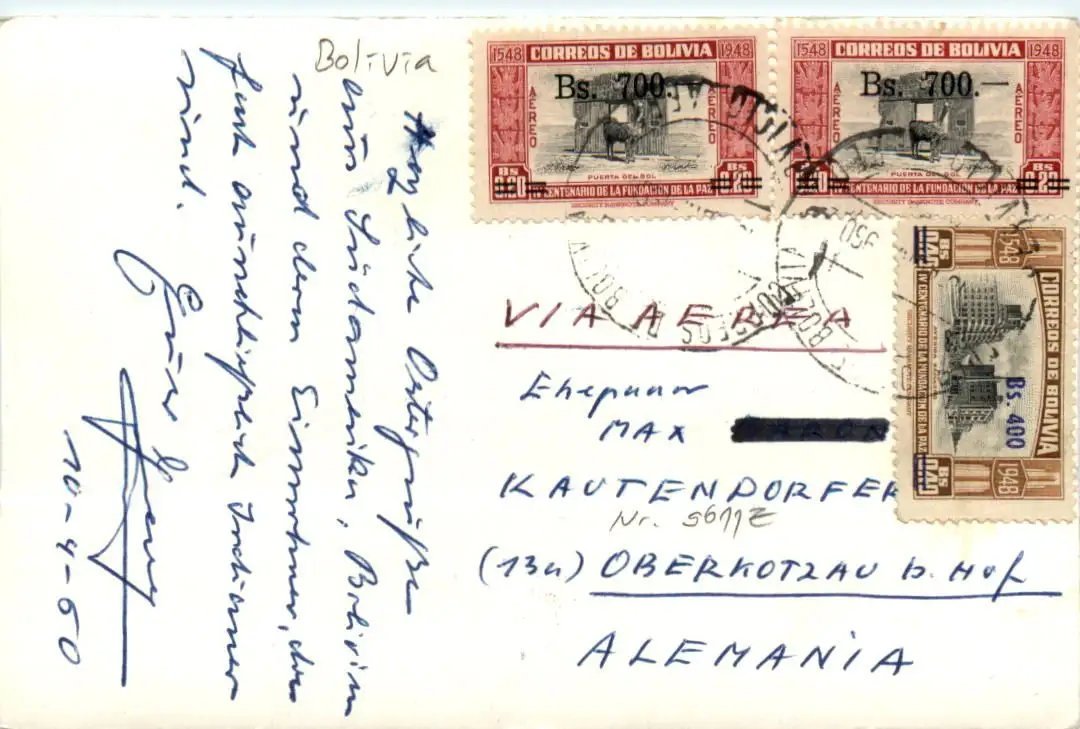 Bolivia
Herzliche Ostergrüße
aus Südamerika, Bolivien
und deren Einwohner, die
fast ausschließlich Indianer
sind.
Euer
10-4-60
1548 CORREOS DE BOLIVIA 1948
Bs. 700.—
AEREO AEREO
PUERTA DEL SOL
BS 0.20 IV CENTENARIO DE LA FUNDACION DE LA PAZ BS 0.20
SECURITY BANKNOTE COMPANY
1548 CORREOS DE BOLIVIA 1948
Bs. 700.—
AEREO
PUERTA DEL SOL
IV CENTENARIO DE LA FUNDACION DE LA PAZ BS 0.20
SECURITY BANKNOTE COMPANY
1548 CORREOS DE BOLIVIA 1948
Bs. 400
IV CENTENARIO DE LA FUNDACION DE LA PAZ
BS 0.40
VIA AEREA
Ehepaar
MAX
KAUTENDORFER
Nr. 5611Z
(13a) OBERKOTZAU b. Hof
ALEMANIA